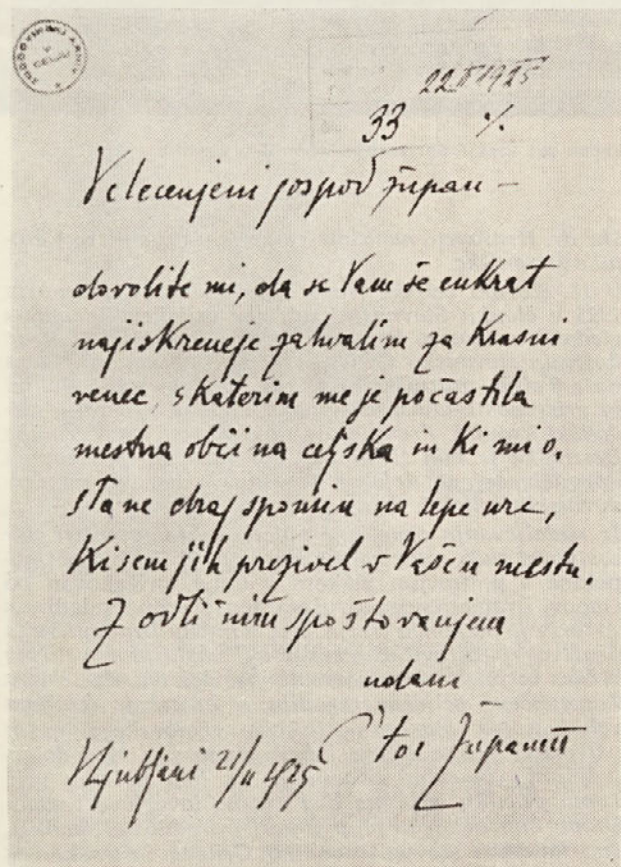 ZGODOVINSKI ARHIV V CELJU
22 II 1925
33 %
Velecenjeni gospod župan –
dovolite mi, da se Vam še enkrat
najiskreneje zahvalim za krasni
venec, s katerim me je počastila
mestna občina celjska in ki mi o.
stane drag spomin na lepe ure,
ki sem jih preživel v Vašem mestu.
Z odličnim spoštovanjem
udani
Oton Župančič
V Ljubljani 21/II 1925